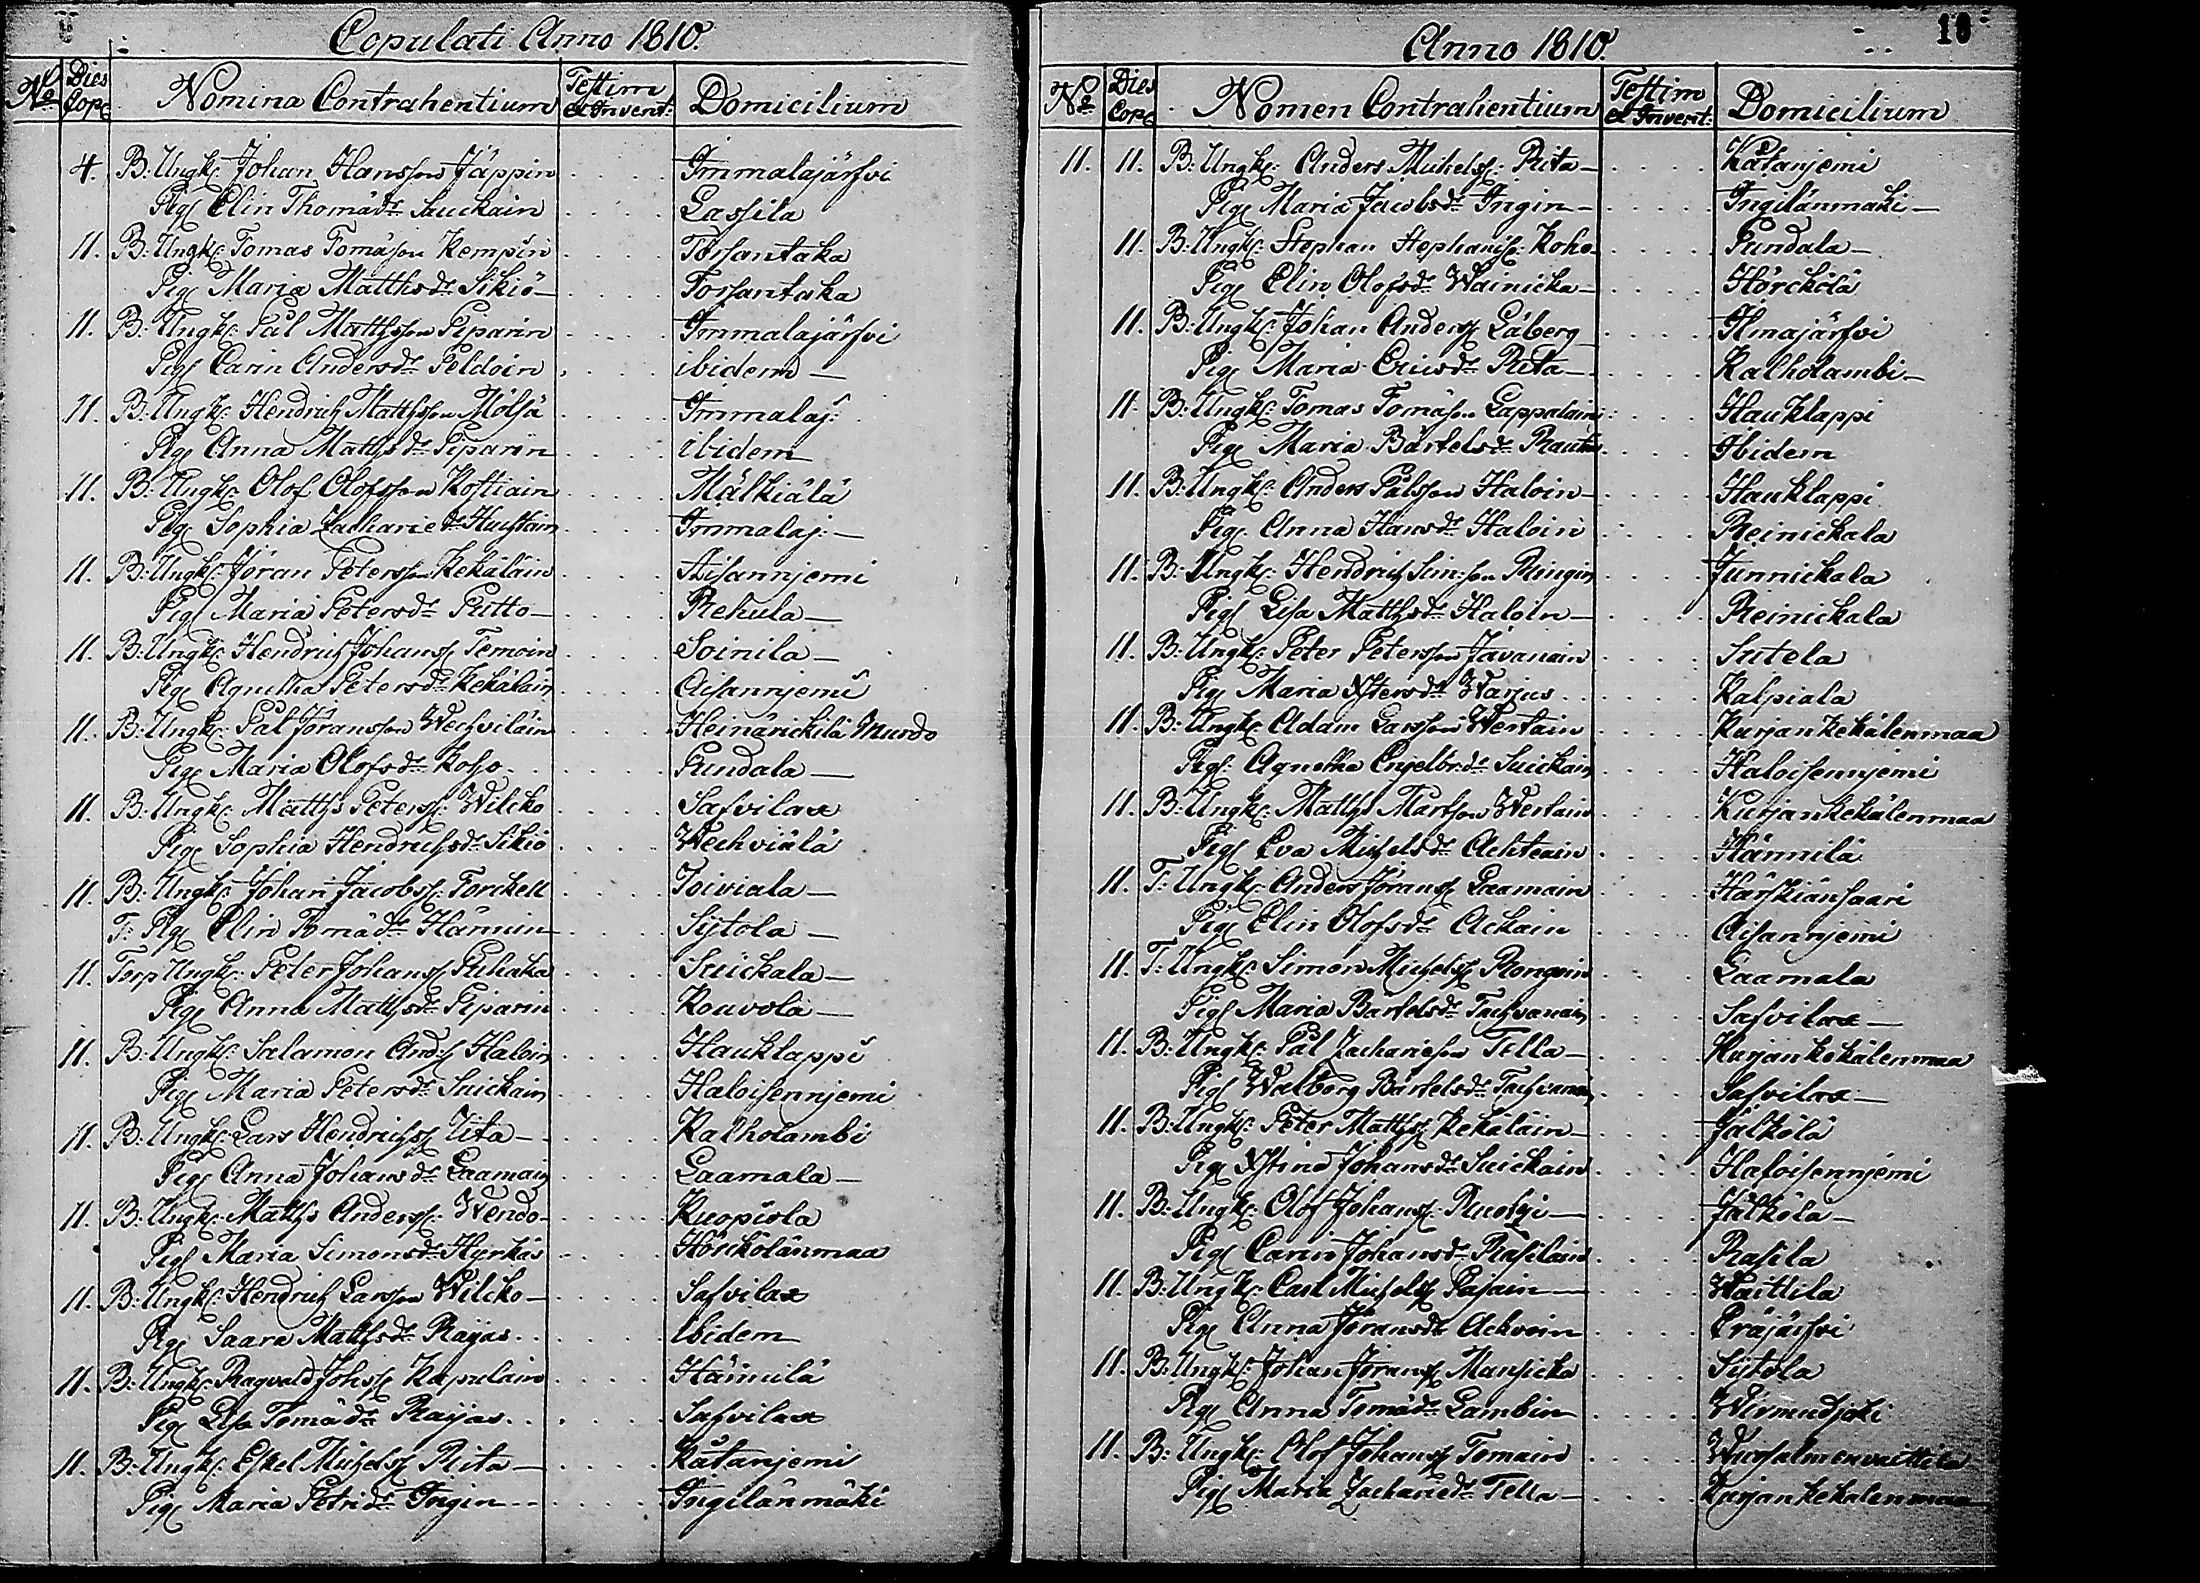 Copulati Anno 1810.
No Dies Cop. Nomina Contrahentium Testim et Invent: Domicilium
4. B: Ungk: Johan Hansson Jäppin Immalajärfvi
Pig: Elin Thomäd:r Suickain Lassila
11. B: Ungk: Tomas Tomäson Kempin Torsantaka
Pig: Maria Matthsd:r Sikiö Torsantaka
11. B: Ungk: Pål Matthsson Piparin Immalajärfvi
Pig: Carin Andersd:r Peldoin ibidem
11. B: Ungk: Hendrich Matthsson Mölsä Immalaj:
Pig: Anna Matthsd:r Piparin ibidem
11. B: Ungk: Olof Olofsson Kostiain Mälkiälä
Pig: Sophia Zacharied:r Immalaj:
11. B: Ungk: Jöran Petersson Kekäläin Aisannjemi
Pig: Maria Petersd:r Putto Rehula
11. B: Ungk: Hendrich Johanss: Temoin Soinila
Pig: Agnetha Petersd:r Kekäläin Aisannjemi
11. B: Ungk: Pål Jöransson Wechviläin Heinärickilä Murdo
Pig: Maria Olofsd:r Koho Pundala
11. B: Ungk: Matths Peterss: Wilcko Safvilax
Pig: Sophia Hendrichsd:r Sikiö Wechviälä
11. B: Ungk: Johan Jacobss: Torckell Toiviala
T: Pig: Elin Tomäd:r Hännin Sijtola
11. Torp Ungk: Peter Johanss: Puhaka Suickala
Pig: Anna Matthsd:r Piparin Kouvola
11. B: Ungk: Salamon And:ss: Haloin Hauklappi
Pig: Maria Petersd:r Suickain Haloisennjemi
11. B: Ungk: Lars Hendrichss: Rita Kalholambi
Pig: Anna Johansd:r Laamain Laamala
11. B: Ungk: Matths Anderss: Wendo Kuopiola
Pig: Maria Simonsd:r Hyrkäs Hörckölänmaa
11. B: Ungk: Hendrich Larsson Wilcko Safvilax
Pig: Saara Matthsd:r Raijas ibidem
11. B: Ungk: Ragvald Johss: Kapulain Hännilä
Pig: Lisa Tomäd:r Raijas Safvilax
11. B: Ungk: Eskel Michelss: Rita Kåtanjemi
Pig: Maria Petrid:r Ingin Ingilänmäki
Anno 1810. 10
No Dies Cop. Nomen Contrahentium Testim et Invent: Domicilium
11. 11. B: Ungk: Anders Michelss: Rita Kåtanjemi
Pig: Maria Jacobsd:r Ingin Ingilänmäki
11. B: Ungk: Stephan Stephanss: Koho Pundala
Pig: Elin Olofsd:r Wainicka Hörckölä
11. B: Ungk: Johan Anderss: Låberg Ilmajärfvi
Pig: Maria Ericsd:r Rita Kalholambi
11. B: Ungk: Tomas Tomäson Lappalain Hauklappi
Pig: Maria Bärtelsd:r Rautio Ibidem
11. B: Ungk: Anders Pålsson Haloin Hauklappi
Pig: Anna Hansd:r Haloin Reinickala
11. B: Ungk: Hendrich Sim:son Ringin Junnickala
Pig: Lisa Matthsd:r Haloin Reinickala
11. B: Ungk: Peter Petersson Javanain Sutela
Pig: Maria Xstersd:r Warjus Kalpiala
11. B: Ungk: Adam Larsson Wertain Kurjankekälenmaa
Pig: Agnetha Engelbr:d:r Suickain Haloisennjemi
11. B: Ungk: Matths Mårtson Wertain Kurjankekälenmaa
Pig: Eva Michelsd:r Achtiain Hännilä
11. T: Ungk: Anders Jöranss: Laamain Härskiänsaari
Pig: Elin Olofsd:r Ackain Aisannjemi
11. T: Ungk: Simon Michelss: Rongoin Laamala
Pig: Maria Bärtelsd:r Tachvanain Safvilax
11. B: Ungk: Pål Zachariesson Tella Kurjankekälenmaa
Pig: Walborg Bärtelsd:r Tachvanain Safvilax
11. B: Ungk: Peter Matthss: Kekäläin Jälkölä
Pig: Xstina Johansd:r Suickain Haloisennjemi
11. B: Ungk: Olof Johanss: Ruotzi Jälkölä
Pig: Carin Johansd:r Rasilain Rasila
11. B: Ungk: Carl Michelss: Pasain Waittila
Pig: Anna Jöransd:r Ackvoin Eräjärfvi
11. B: Ungk: Johan Jöranss: Mansicka Sijtola
Pig: Anna Tomäd:r Lambin Wirmudjoki
11. B: Ungk: Olof Johanss: Tomain
Pig: Maria Zacharied:r Tella Kurjankekälenmaa